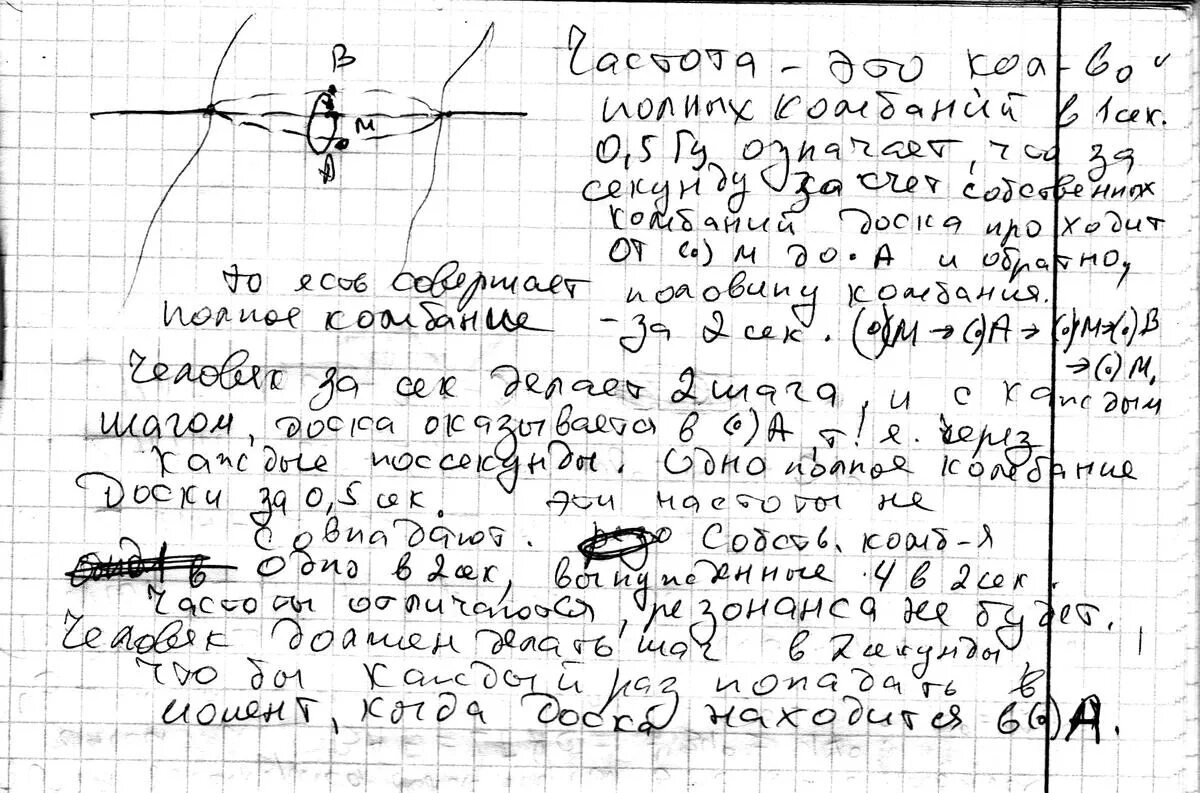 В
М
А
Частота - это кол-во
полных колебаний в 1 сек.
0,5 Гц означает, что за
секунду за счет собственных
колебаний доска проходит
от (·) М до · А и обратно,
то есть совершает половину колебания.
полное колебание - за 2 сек. (·)М → (·)А → (·)М → (·)В
→ (·) М.
Человек за сек делает 2 шага, и с каждым
шагом, доска оказывается в (·) А, т. е. через
каждые полсекунды. Одно полное колебание
доски за 0,5 сек. Эти частоты не
совпадают. Собств. колеб-я
одно в 2 сек, вынужденные 4 в 2 сек.
Частоты отличаются, резонанса не будет.
Человек должен делать шаг в 2 секунды
что бы каждый раз попадать в
момент, когда доска находится в (·) А.